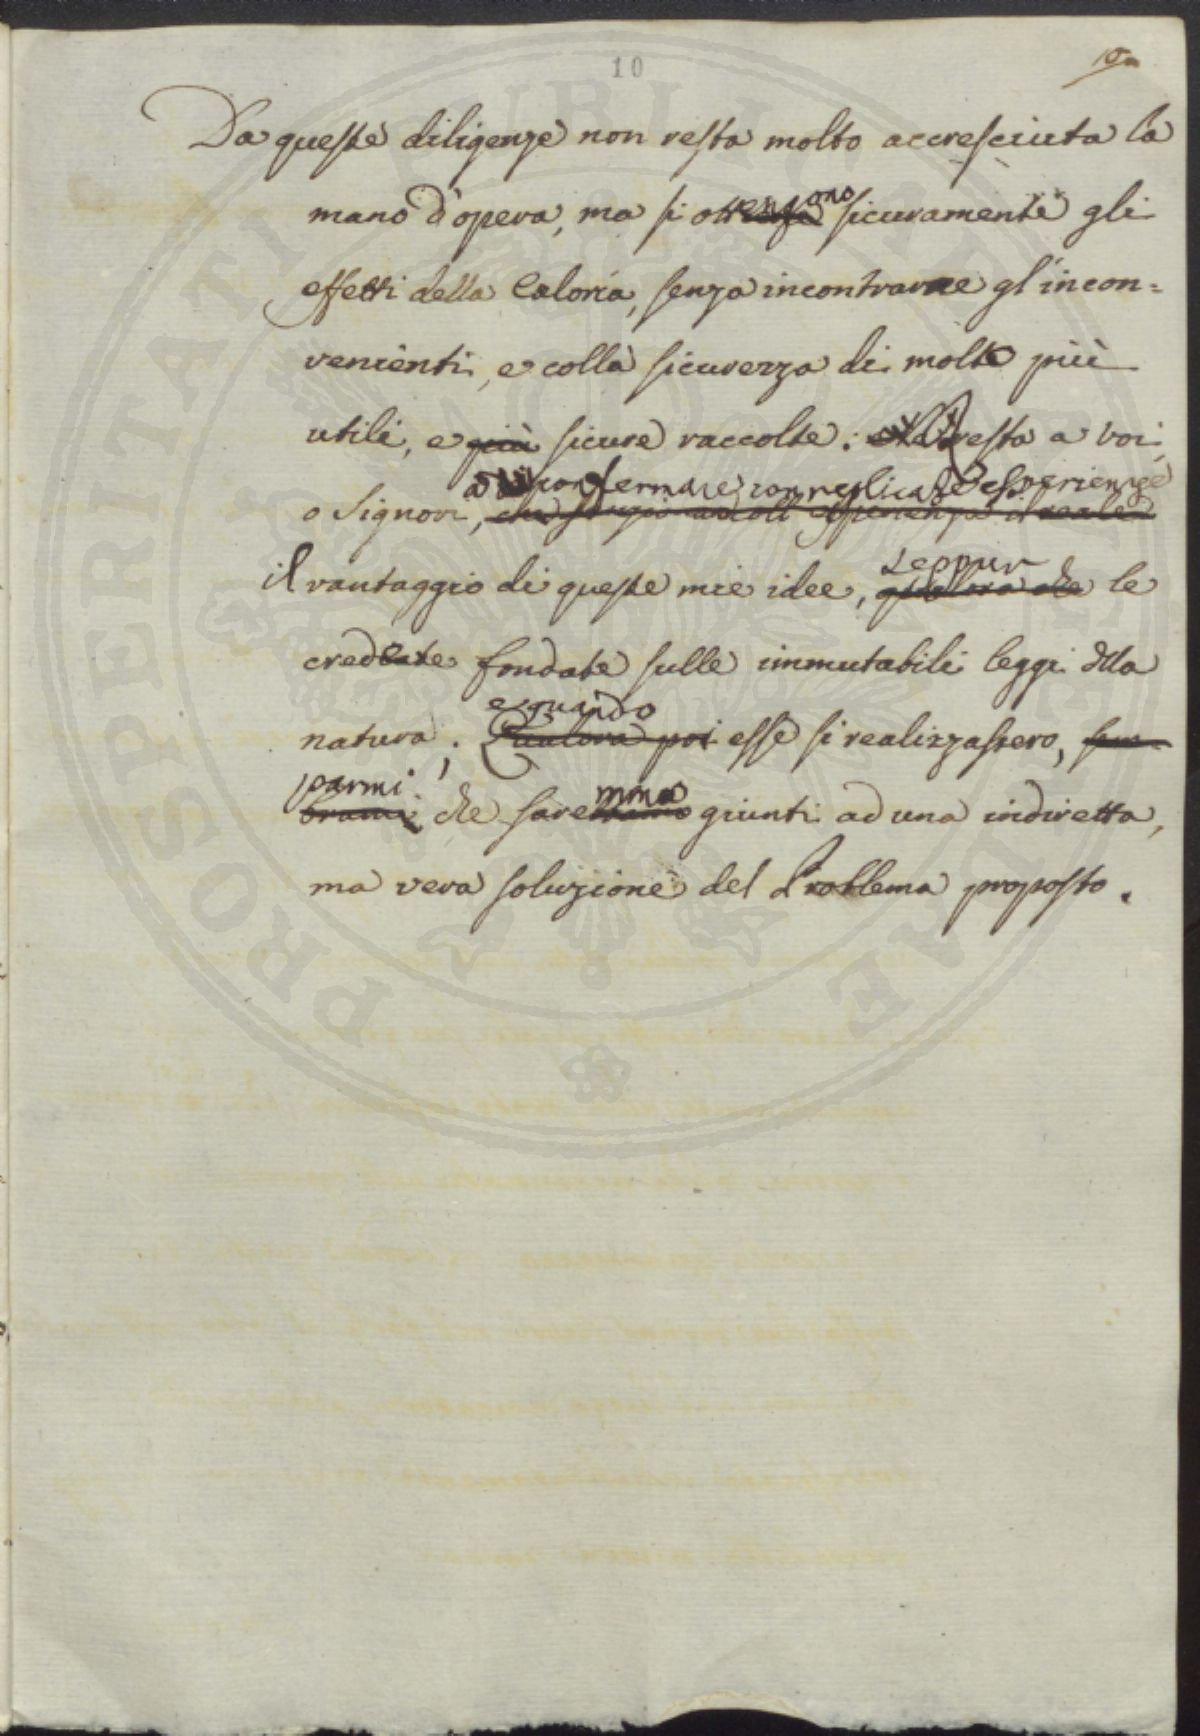 10
10
Da queste diligenze non resta molto accresciuta la
mano d'opera, ma si ottengono sicuramente gli
effetti della Caloria, senza incontrarne gl'incon=
venienti, e colla sicurezza di molto più
utili, e più sicure raccolte: resta a voi,
a confermare, con replicate esperienze
o Signori, che colle esperienze il reale
il vantaggio di queste mie idee, qualora che le
seppur
credeate fondate sulle immutabili leggi dlla
e quando
natura; Qualora poi esse si realizzassero, sem=
parmi
brami che saremmo giunti ad una indiretta,
ma vera soluzione del Problema proposto.
PROSPERITATI PUBLICAE